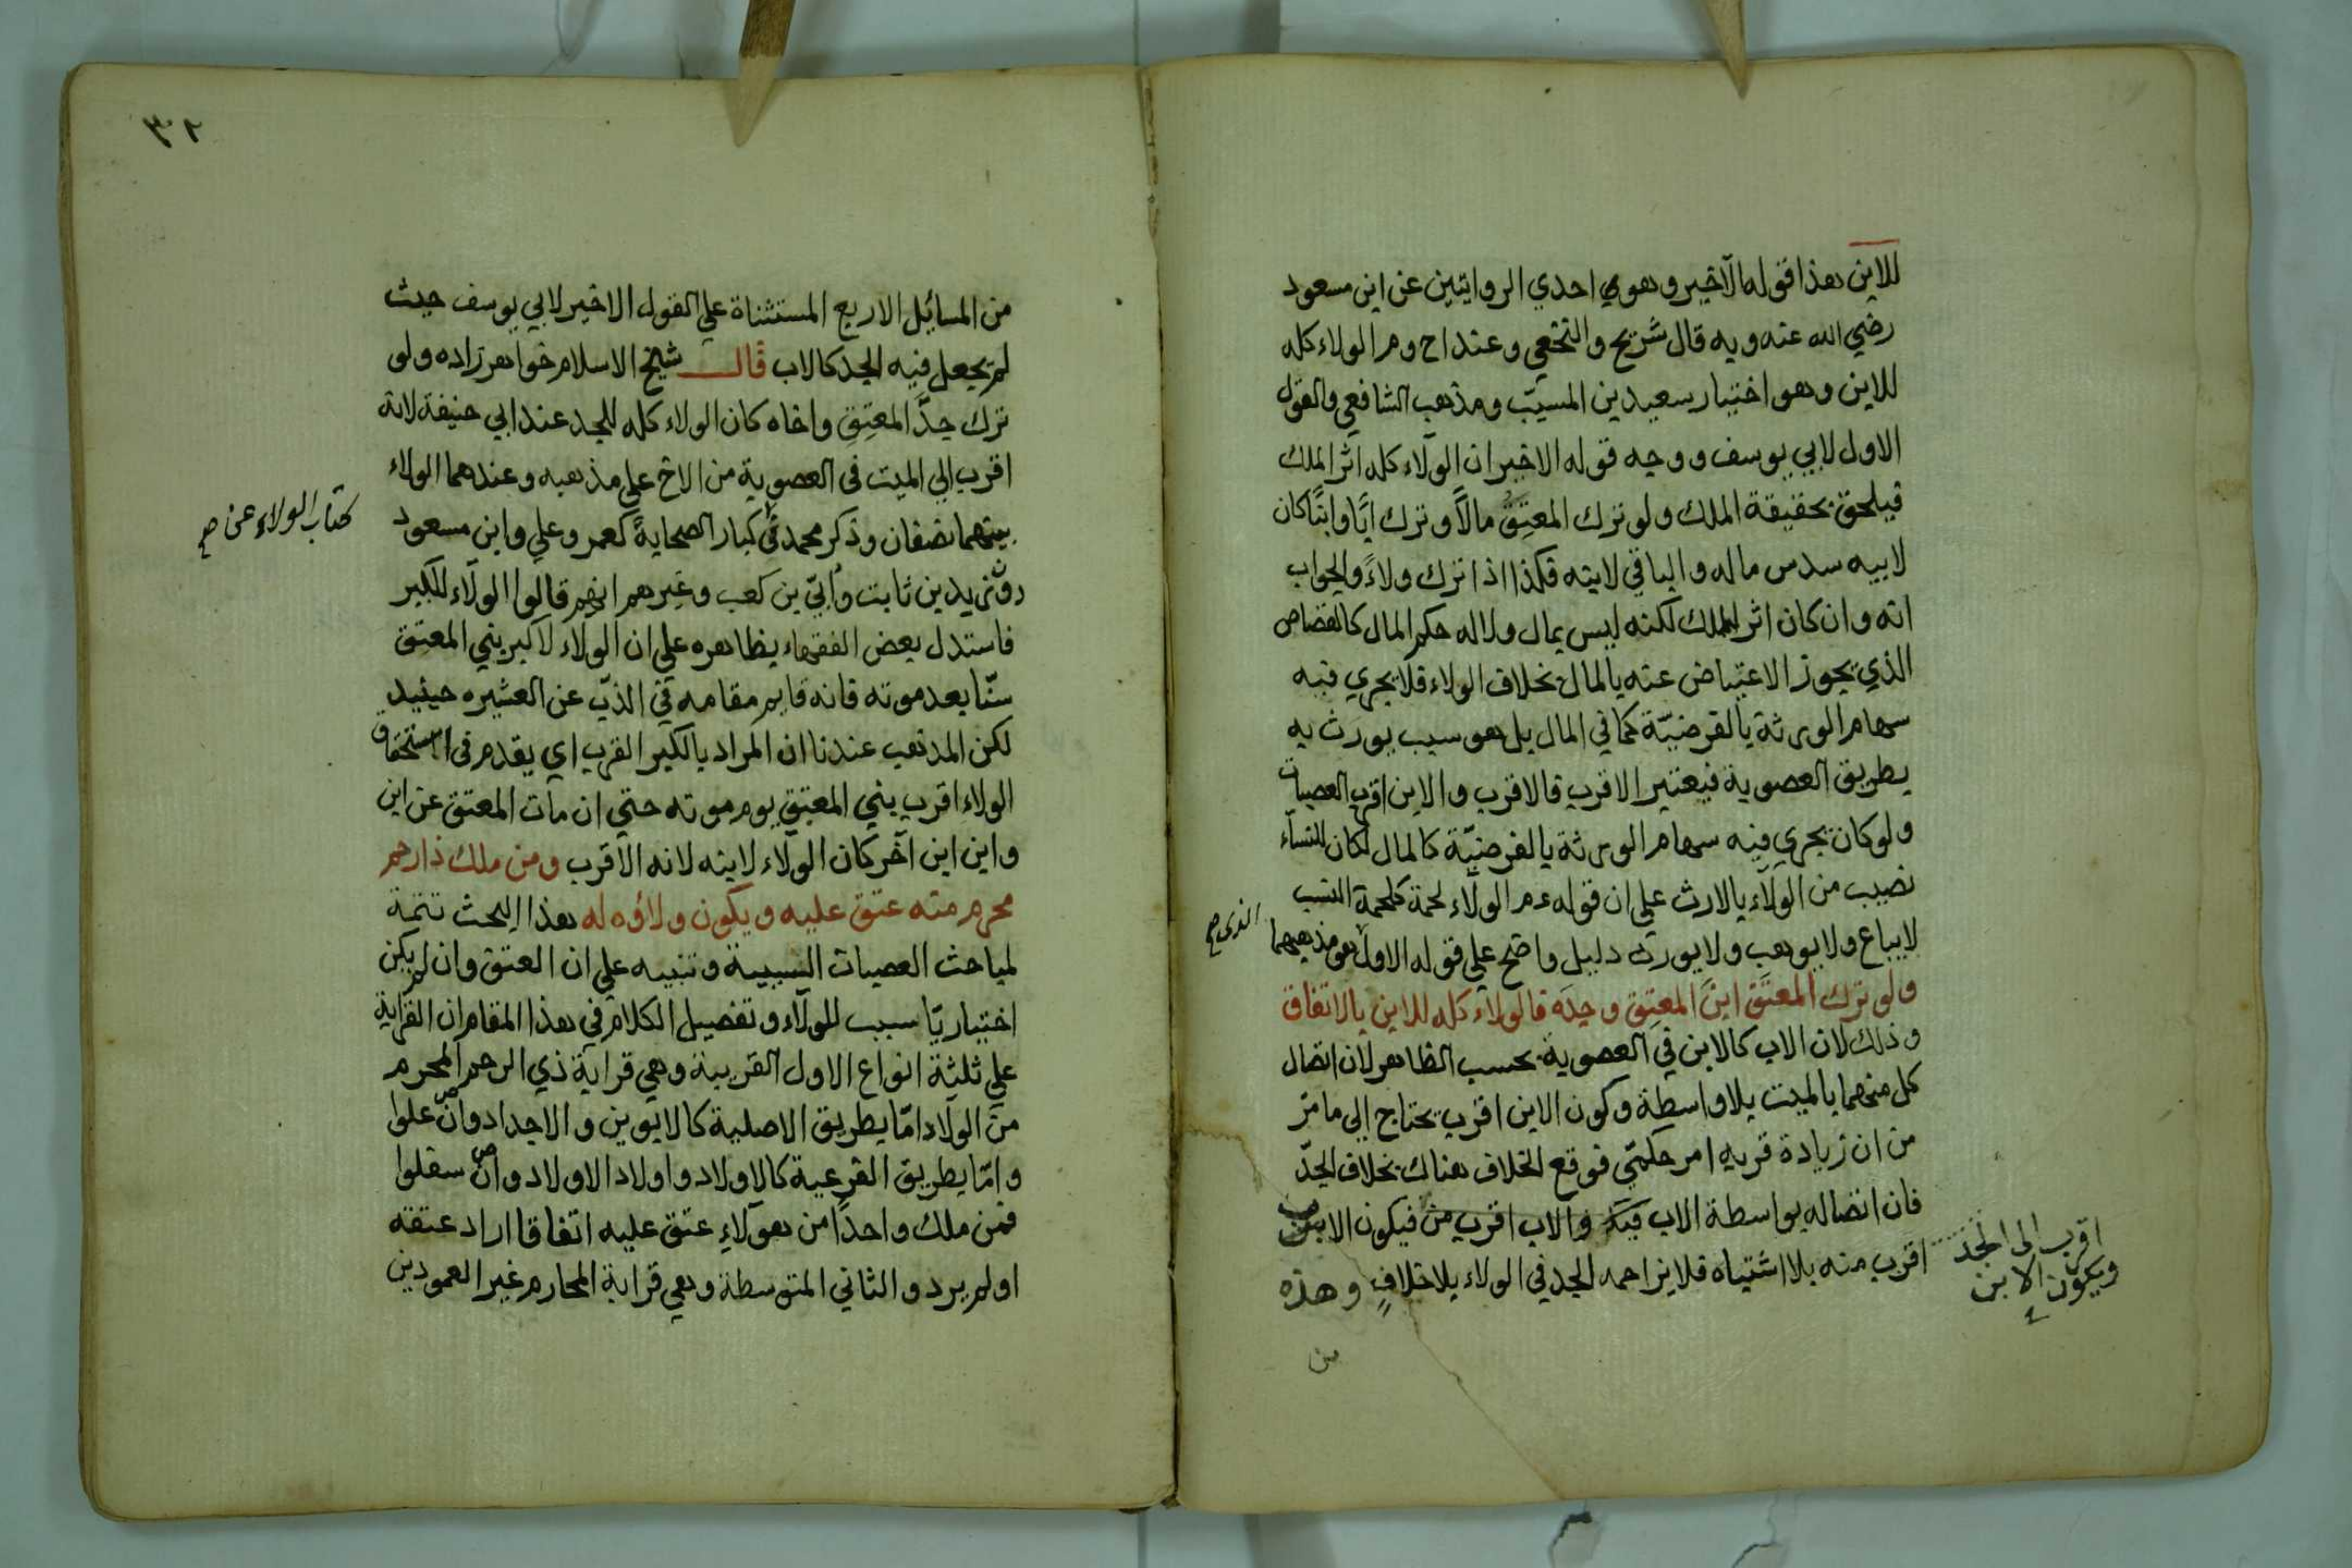 للابن هذا قوله الآخير وهوي احدي الروايتين عن ابن مسعود
رضي الله عنه وبه قال شريح والنخعي وعند اح وم الولاء كله
للابن وهو اختيار سعيد بن المسيّب ومذهب الشافعي والقول
الاول لابي يوسف ووجه قوله الاخير ان الولآء كله اثر الملك
فيلحق بحقيقة الملك ولو ترك المعتِق مالاً وترك ابًا وابنًا كان
لابيه سدس ماله والباقي لابنه فكذا اذا ترك ولاءً والجواب
انه وان كان اثر الملك لكنه ليس بمال ولا له حكم المال كالقصاص
الذي يجوز الاعتياض عنه بالمال بخلاف الولاء فلا يجري فيه
سهام الورثة بالفرضيّة كما في المال بل هو سبب يورث به
بطريق العصوبة فيعتبر الاقرب فالاقرب والابن اقرب العصبات
ولو كان يجري فيه سهام الورثة بالفرضيّة كالمال لكان للنسآء
نصيب من الولآء بالارث علي ان قوله عم الولآء لحمة كلحمة النسب
لا يباع ولا يوهب ولا يورث دليل واضح علي قوله الاول هو مذهبهما
الذي صح
ولو ترك المعتَق ابن المعتِق وجدّه فالولاء كله للابن بالاتفاق
وذلك لان الاب كالابن في العصوبة بحسب الظاهر لان اتصال
كل منهما بالميت بلا واسطة وكون الابن اقرب يحتاج الي ما مرّ
من ان زيادة قربه امر حكميّ فوقع الخلاف هناك بخلاف الجدّ
فان اتصاله بواسطة الاب فيه والاب اقرب من فيكون الابن
اقرب منه بلا اشتباه فلا يزاحمه الجد في الولاء بلا خلافٍ وهذه
اقرب الى الجد
ويكون الابن
من
٣٢
من المسائل الاربع المستثناة علي القول الاخير لابي يوسف حيث
لم يجعل فيه الجد كالاب قال شيخ الاسلام خواهر زاده ولو
ترك جدَّ المعتِقِ واخاه كان الولاء كله للجد عند ابي حنيفة لانه
اقرب الي الميت في العصوبة من الاخ علي مذهبه وعندهما الولاء
بينهما نصفان وذكر محمد في كبار الصحابة كعمر وعلي وابن مسعود
كتاب الولاء عن صح
وزيد بن ثابت واُبيّ بن كعب وغيرهم انهم قالوا الولآء للكبير
فاستدل بعض الفقهاء بظاهره علي ان الولاء لاكبر بني المعتق
سنّا بعد موته فانه قايم مقامه في الذبّ عن العشيره حينيد
لكن المذهب عندنا ان المراد بالكبر القرب اي يقدم في استحقاق
الولاء اقرب بني المعتق يوم موته حتي ان مات المعتق عن ابن
وابن ابن آخر كان الولآء لابنه لانه الاقرب ومن ملك ذا رحم
محرم منه عتق عليه ويكون ولاؤه له هذا البحث تتمة
لمباحث العصبات السببية وتنبيه علي ان العتق وان لم يكن
اختياريّا سبب للولآء وتفصيل الكلام في هذا المقام ان القرابة
علي ثلثة انواع الاول القريبة وهي قرابة ذي الرحم المحرم
من الولاد امّا بطريق الاصلية كالابوين والاجداد وان علوا
وامّا بطريق الفرعية كالاولاد واولاد الاولاد وان سفلوا
فمن ملك واحدًا من هولآءِ عتق عليه اتفاقا اراد عتقه
او لم يرد والثاني المتوسطة وهي قرابة المحارم غير العمودين